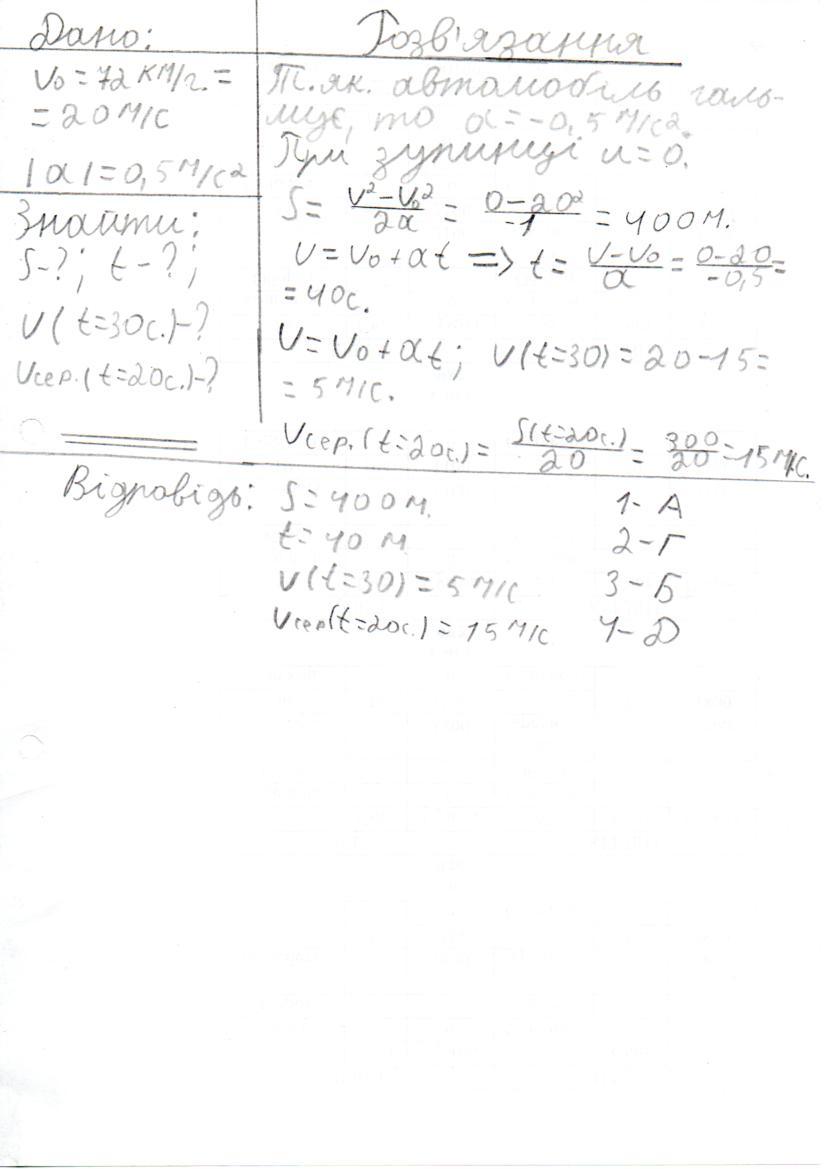 Дано:
Розв'язання
V₀ = 72 км/г. =
= 20 м/с
|a| = 0,5 м/с²
Знайти:
S-?; t-?;
V(t=30с.)-?
Vсер.(t=20с.)-?
Т.як. автомобіль галь-
мує, то a = -0,5 м/с².
При зупинці u=0.
S = (V² - V₀²)/2a = (0 - 20²)/-1 = 400 м.
V = V₀ + at => t = (V - V₀)/a = (0 - 20)/-0,5 =
= 40с.
V = V₀ + at; V(t=30) = 20 - 15 =
= 5 м/с.
Vсер.(t=20с.) = S(t=20с.)/20 = 300/20 = 15 м/с.
Відповідь: S = 400 м. 1- А
t = 40 м 2-Г
V(t=30) = 5 м/с 3-Б
Vсер(t=20с.) = 15 м/с 4-Д